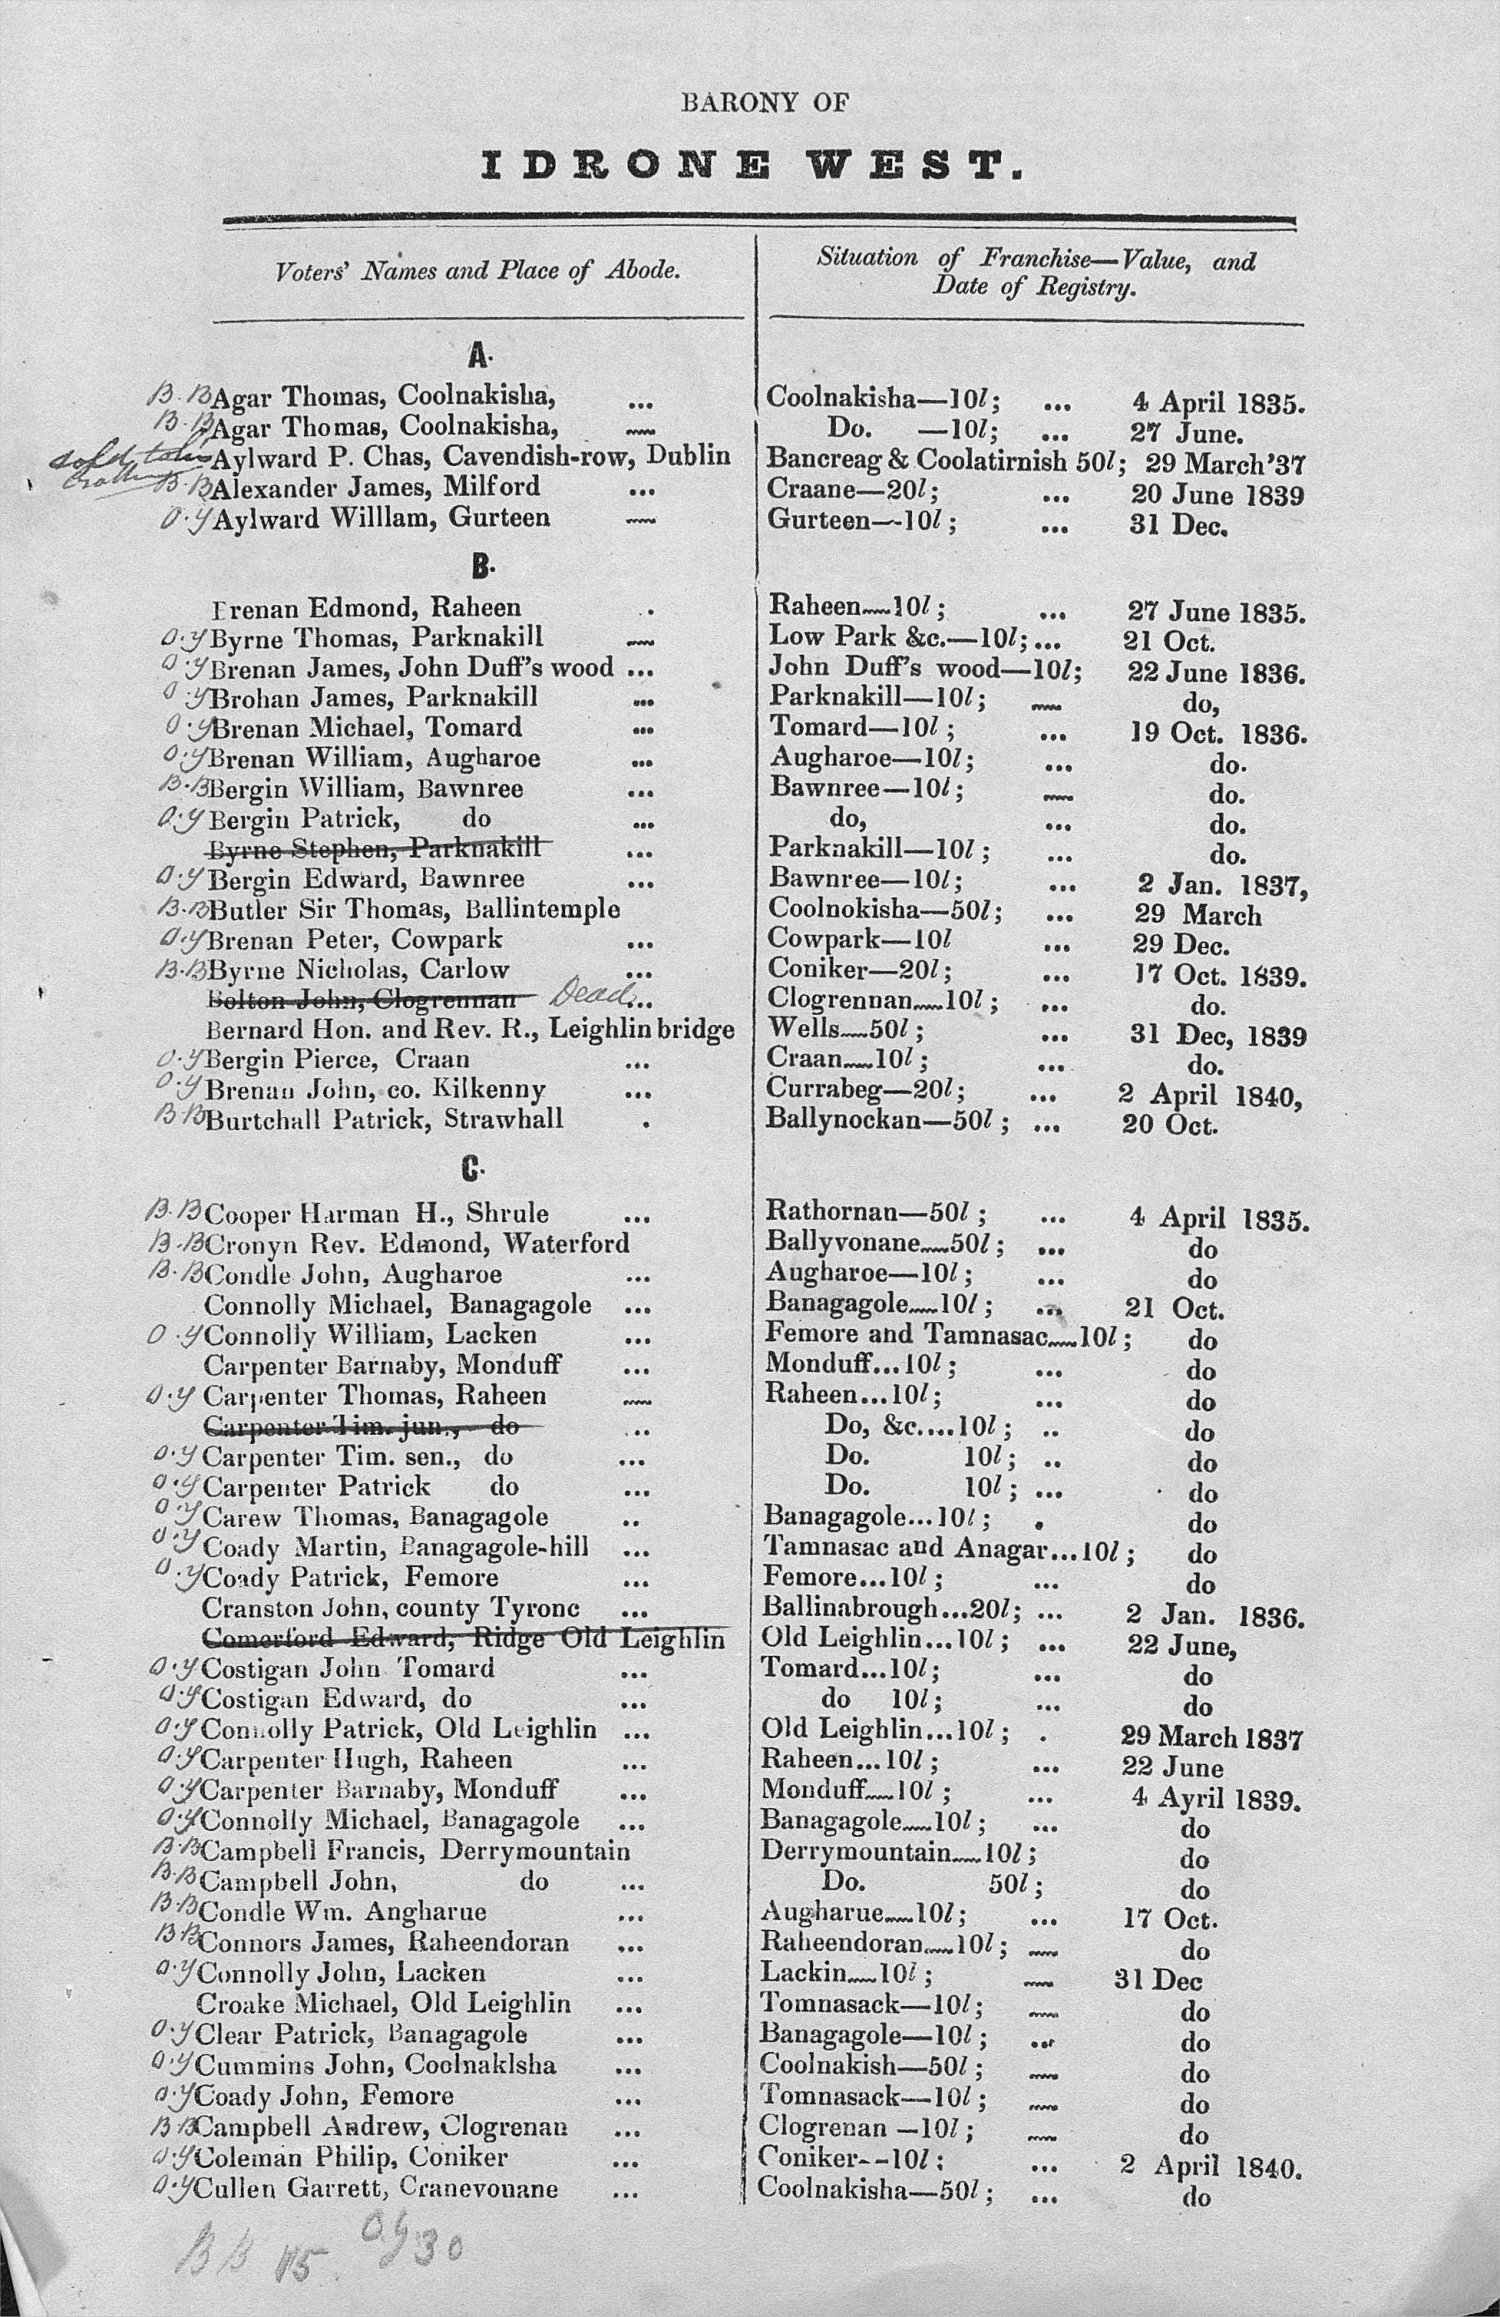 BARONY OF
IDRONE WEST.
Voters' Names and Place of Abode.
Situation of Franchise—Value, and
Date of Registry.
A.
B.B Agar Thomas, Coolnakisha, ... Coolnakisha—10l; ... 4 April 1835.
B.B Agar Thomas, Coolnakisha, Do. —10l; ... 27 June.
sold to his Aylward P. Chas, Cavendish-row, Dublin Bancreag & Coolatirnish 50l; 29 March '37
B.B Alexander James, Milford ... Craane—20l; ... 20 June 1839
O.Y Aylward Willlam, Gurteen Gurteen—10l; ... 31 Dec.
B.
Brenan Edmond, Raheen . Raheen—10l; ... 27 June 1835.
O.Y Byrne Thomas, Parknakill Low Park &c.—10l; ... 21 Oct.
O.Y Brenan James, John Duff's wood ... John Duff's wood—10l; 22 June 1836.
O.Y Brohan James, Parknakill ... Parknakill—10l; do,
O.Y Brenan Michael, Tomard ... Tomard—10l; ... 19 Oct. 1836.
O.Y Brenan William, Augharoe ... Augharoe—10l; ... do.
B.B Bergin William, Bawnree ... Bawnree—10l; do.
O.Y Bergin Patrick, do ... do, ... do.
Byrne Stephen, Parknakill ... Parknakill—10l; ... do.
O.Y Bergin Edward, Bawnree ... Bawnree—10l; ... 2 Jan. 1837,
B.B Butler Sir Thomas, Ballintemple Coolnokisha—50l; ... 29 March
O.Y Brenan Peter, Cowpark ... Cowpark—10l ... 29 Dec.
B.B Byrne Nicholas, Carlow ... Coniker—20l; ... 17 Oct. 1839.
Bolton John, Clogrennan Dead ... Clogrennan—10l; ... do.
Bernard Hon. and Rev. R., Leighlinbridge Wells—50l; ... 31 Dec, 1839
O.Y Bergin Pierce, Craan ... Craan—10l; ... do.
O.Y Brenan John, co. Kilkenny ... Currabeg—20l; ... 2 April 1840,
B B Burtchall Patrick, Strawhall . Ballynockan—50l; ... 20 Oct.
C.
B.B Cooper Harman H., Shrule ... Rathornan—50l; ... 4 April 1835.
B.B Cronyn Rev. Edmond, Waterford Ballyvonane—50l; ... do
B.B Condle John, Augharoe ... Augharoe—10l; ... do
Connolly Michael, Banagagole ... Banagagole—10l; ... 21 Oct.
O.Y Connolly William, Lacken ... Femore and Tamnasac—10l; do
Carpenter Barnaby, Monduff ... Monduff...10l; ... do
O.Y Carpenter Thomas, Raheen Raheen...10l; ... do
Carpenter Tim. jun., do .. Do, &c....10l; .. do
O.Y Carpenter Tim. sen., do ... Do. 10l; .. do
O.Y Carpenter Patrick do ... Do. 10l; ... do
O.Y Carew Thomas, Banagagole .. Banagagole...10l; . do
O.Y Coady Martin, Banagagole-hill ... Tamnasac and Anagar...10l; do
O.Y Coady Patrick, Femore ... Femore...10l; ... do
Cranston John, county Tyronc ... Ballinabrough...20l; ... 2 Jan. 1836.
Comerford Edward, Ridge Old Leighlin Old Leighlin...10l; ... 22 June,
O.Y Costigan John Tomard ... Tomard...10l; ... do
O.Y Costigan Edward, do ... do 10l; ... do
O.Y Connolly Patrick, Old Leighlin ... Old Leighlin...10l; . 29 March 1837
O.Y Carpenter Hugh, Raheen ... Raheen...10l; ... 22 June
O.Y Carpenter Barnaby, Monduff ... Monduff—10l; ... 4 Ayril 1839.
O.Y Connolly Michael, Banagagole ... Banagagole—10l; ... do
B.B Campbell Francis, Derrymountain Derrymountain—10l; do
B.B Campbell John, do ... Do. 50l; do
B.B Condle Wm. Angharue ... Augharue—10l; ... 17 Oct.
B B Connors James, Raheendoran ... Raheendoran—10l; do
O.Y Connolly John, Lacken ... Lackin—10l; 31 Dec
Croake Michael, Old Leighlin ... Tomnasack—10l; do
O.Y Clear Patrick, Banagagole ... Banagagole—10l; ... do
O.Y Cummins John, Coolnaklsha ... Coolnakish—50l; do
O.Y Coady John, Femore ... Tomnasack—10l; do
B B Campbell Andrew, Clogrenan ... Clogrenan—10l; do
O.Y Coleman Philip, Coniker ... Coniker--10l; ... 2 April 1840.
O.Y Cullen Garrett, Cranevonane ... Coolnakisha—50l; ... do
B B 15. O.Y 30